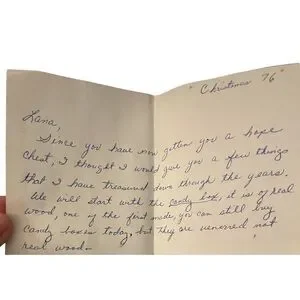 " Christmas 76 "
Lana,
Since you have now gotten you a hope
chest, I thought I would give you a few things
that I have treasured down through the years.
We will start with the candy box, it is of real
wood, one of the first made, you can still buy
candy boxes today, but they are veneered not
real wood—